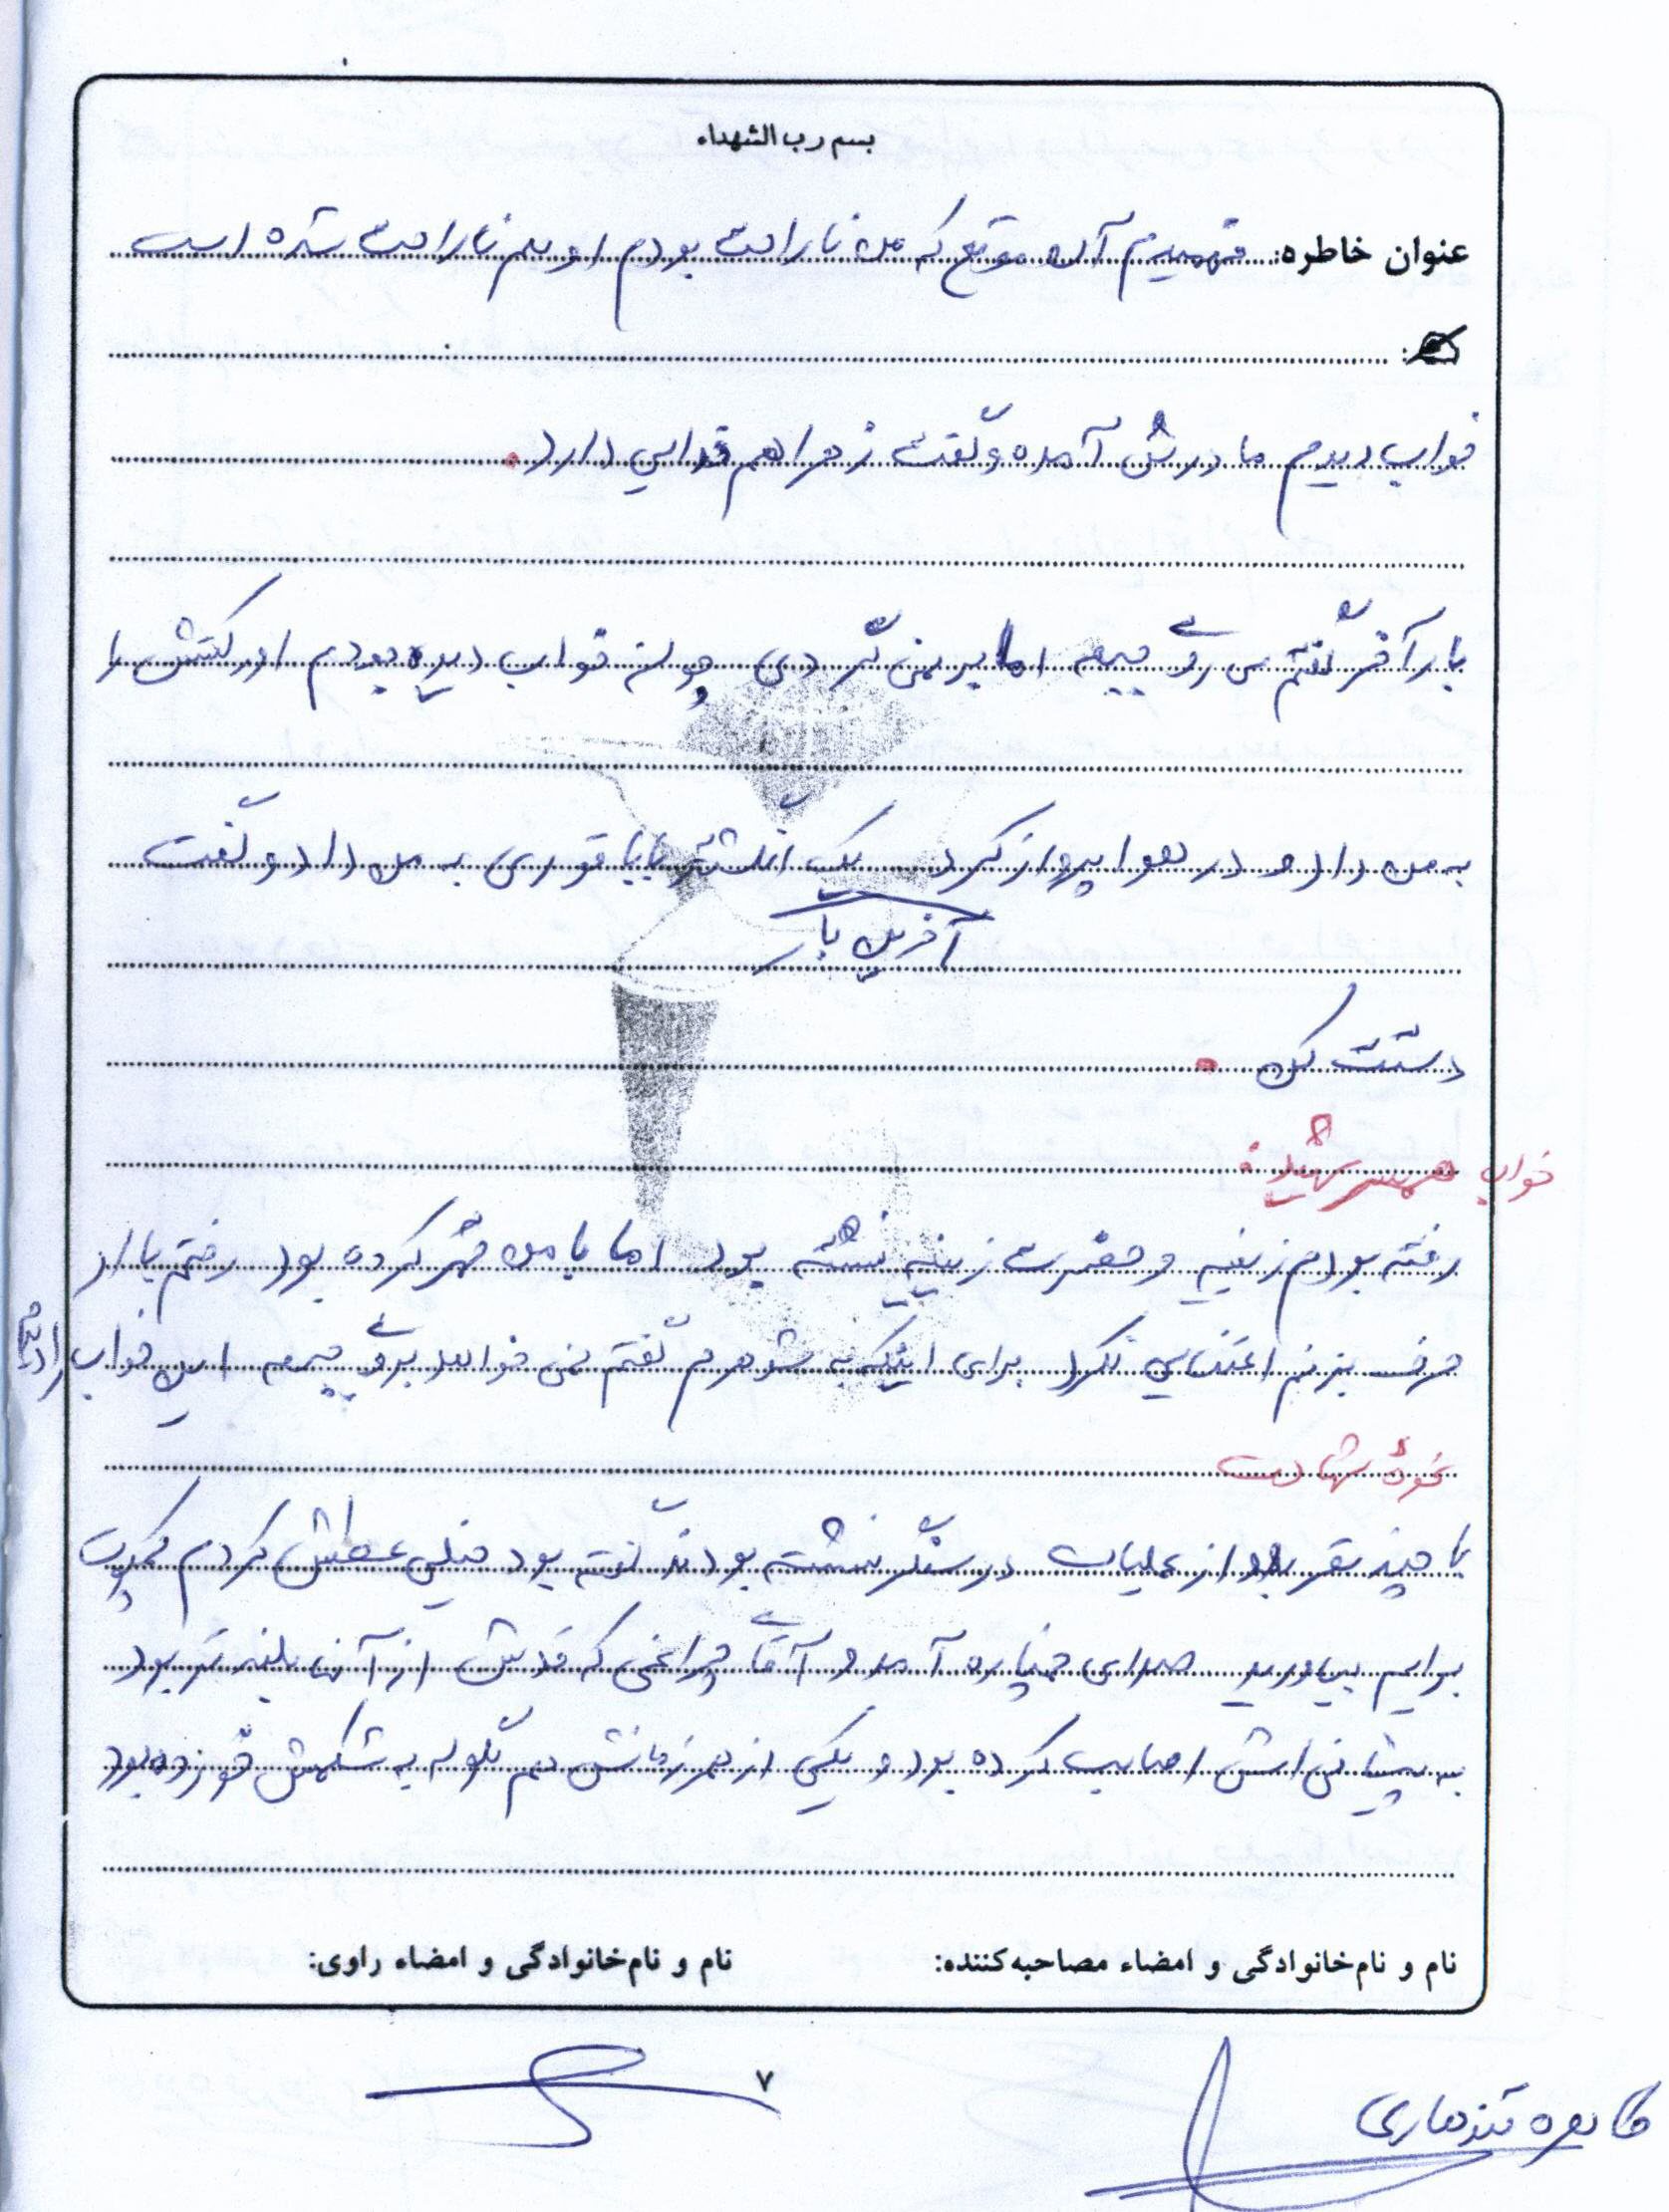 بسم رب الشهداء
عنوان خاطره: فهمیدم آن موقع که من ناراحت بودم او هم ناراحت شده است
خواب دیدم مادرش آمده و گفت زهرا هم خدایی دارد.
بار آخر گفتم می روی جبهه اما بر نمی گردی چون خواب دیده بودم اورکتش را
به من داد و در هوا پرواز کرد یک انگشتر بابا قوری به من داد و گفت
آخرین بار
دستت کن.
خواب همسر شهید:
رفته بودم زینبیه و حضرت زینب نشسته بود اما با من قهر کرده بود رفتم با او
حرف بزنم اعتنایی نکرد برای اینکه به شوهرم گفتم نمی خواهد بروی جبهه این خواب را دیدم
نحوۀ شهادت
با چند نفر بعد از عملیات در سنگر نشسته بودند گفته بود خیلی عطش کردم
برایم بیاورید صدای خمپاره آمد و آقای چراغی که قدش از آنها بلندتر بود
به پیشانی اش اصابت کرده بود و یکی از همرزمانش هم گلوله به شکمش خورده بود
نام و نام‌خانوادگی و امضاء مصاحبه‌کننده: نام و نام‌خانوادگی و امضاء راوی:
۷
طاهره قندهاری